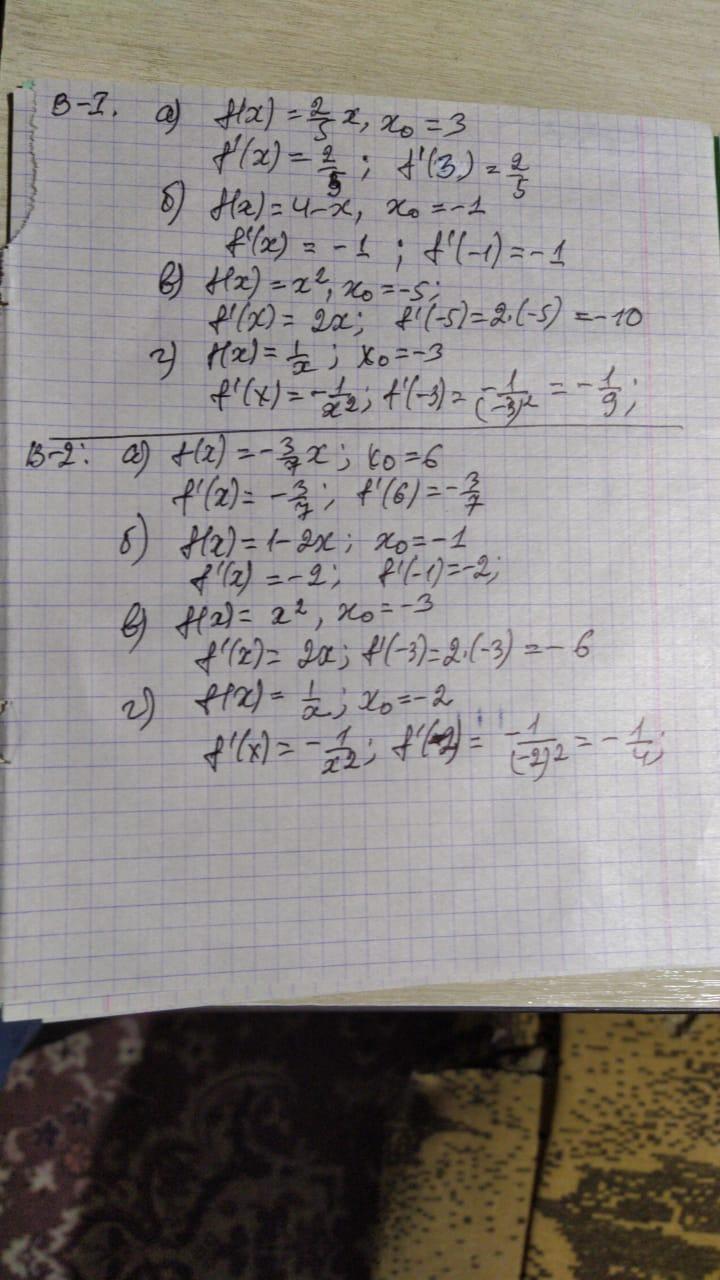 В-I. а) f(x) = 2/5 x, x₀ = 3
f'(x) = 2/5 ; f'(3) = 2/5
б) f(x) = 4-x, x₀ = -1
f'(x) = -1 ; f'(-1) = -1
в) f(x) = x², x₀ = -5;
f'(x) = 2x; f'(-5) = 2·(-5) = -10
г) f(x) = 1/x ; x₀ = -3
f'(x) = -1/x²; f'(-3) = -1/(-3)² = -1/9;
В-2: а) f(x) = -3/7 x ; x₀ = 6
f'(x) = -3/7; f'(6) = -3/7
б) f(x) = 1-2x; x₀ = -1
f'(x) = -2; f'(-1) = -2;
в) f(x) = x², x₀ = -3
f'(x) = 2x; f'(-3) = 2·(-3) = -6
г) f(x) = 1/x; x₀ = -2
f'(x) = -1/x²; f'(-2) = -1/(-2)² = -1/4;